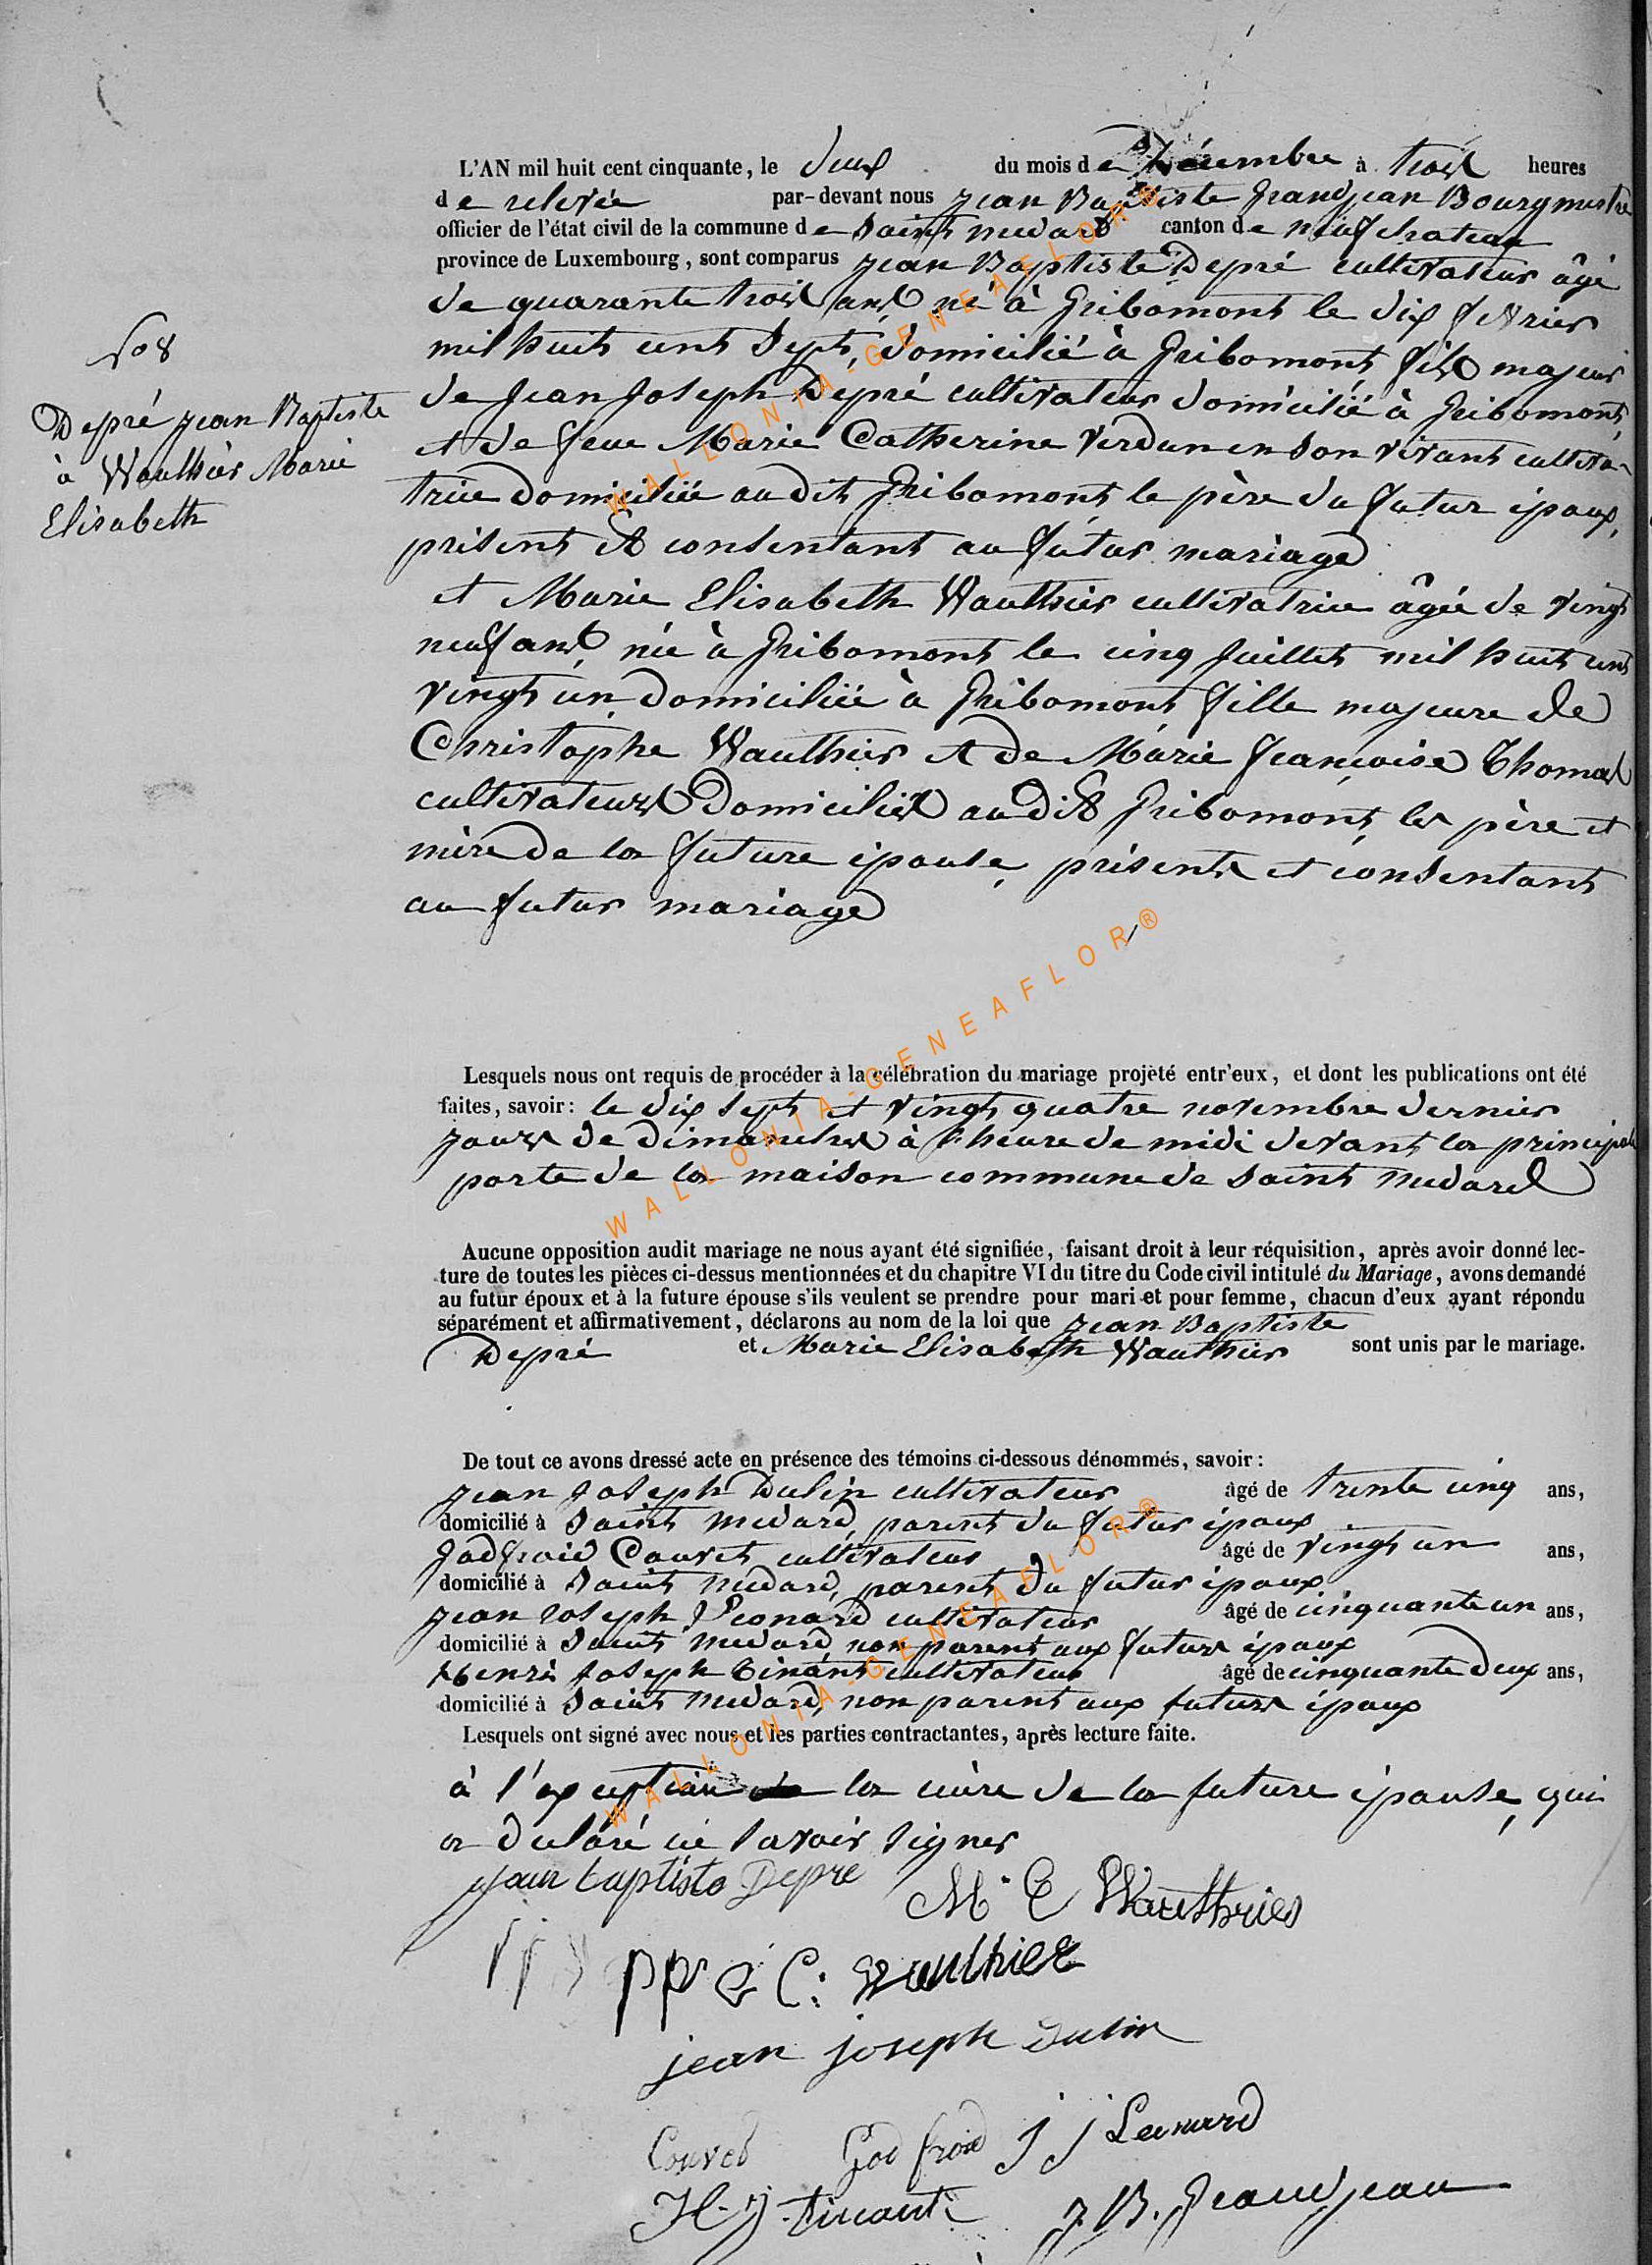 L'AN mil huit cent cinquante, le deux du mois de Décembre à trois heures
de relevée par-devant nous jean Baptiste Grandjean Bourgmestre
officier de l'état civil de la commune de Saint medard canton de neufchateau
province de Luxembourg, sont comparus jean Baptiste Depré cultivateur âgé
de quarante trois ans, né à Gribomont le dix fevrier
mil huit cent Sept, domicilié à Gribomont fils majeur
de Jean Joseph Depré cultivateur domicilié à Gribomont,
et de feue Marie Catherine Verdun en son vivant cultiva-
trice domiciliée au dit Gribomont le père du futur époux,
présent et consentant au futur mariage
N° 8
Depré jean Baptiste
à Wauthier Marie
Elisabeth
et Marie Elisabeth Wauthier cultivatrice âgée de vingt
neuf ans, née à Gribomont le cinq Juillet mil huit cent
vingt un domiciliée à Gribomont fille majeure de
Christophe Wauthier et de Marie françoise Thomas
cultivateurs domiciliés au dit Gribomont, les père et
mère de la future épouse, présents et consentant
au futur mariage
Lesquels nous ont requis de procéder à la célébration du mariage projèté entr'eux, et dont les publications ont été
faites, savoir: le dix Sept et vingt quatre novembre dernier
jours de dimanches à l'heure de midi devant la principale
porte de la maison commune de Saint medard
Aucune opposition audit mariage ne nous ayant été signifiée, faisant droit à leur réquisition, après avoir donné lec-
ture de toutes les pièces ci-dessus mentionnées et du chapitre VI du titre du Code civil intitulé du Mariage, avons demandé
au futur époux et à la future épouse s'ils veulent se prendre pour mari et pour femme, chacun d'eux ayant répondu
séparément et affirmativement, déclarons au nom de la loi que jean Baptiste
Depré et Marie Elisabeth Wauthier sont unis par le mariage.
De tout ce avons dressé acte en présence des témoins ci-dessous dénommés, savoir:
jean Joseph Dulin cultivateur âgé de trente cinq ans,
domicilié à Saint medard, parent du futur époux
Godfroid Couvet cultivateur âgé de vingt un ans,
domicilié à Saint medard, parent du futur époux
jean Joseph Léonard cultivateur âgé de cinquante un ans,
domicilié à Saint medard, non parent aux futurs époux
henri Joseph Tinant cultivateur âgé de cinquante deux ans,
domicilié à Saint medard, non parent aux futurs époux
Lesquels ont signé avec nous et les parties contractantes, après lecture faite.
à l'exception de la mère de la future épouse, qui
a déclaré ne savoir signer
jean baptiste Depre
M. E Wauthier
C: wauthier
jean joseph dulin
Couvet Godfroid j j Leonard
H. j. tinant j. B. Grandjean
WALLONIA-GENEAFLOR®
WALLONIA-GENEAFLOR®
WALLONIA-GENEAFLOR®